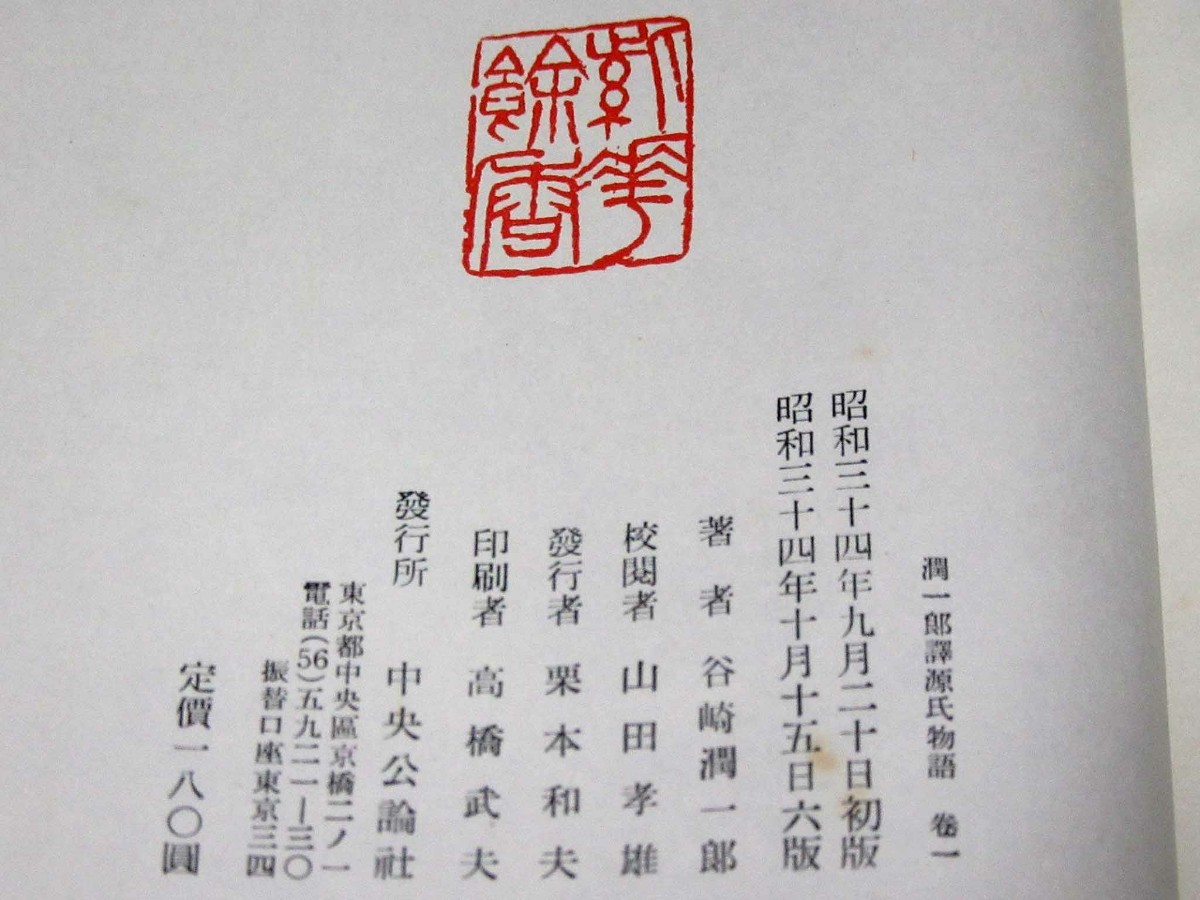 紫花
餘香
潤一郎譯源氏物語　卷一
昭和三十四年九月二十日初版
昭和三十四年十月十五日六版
著者　谷崎潤一郎
校閱者　山田孝雄
發行者　栗本和夫
印刷者　高橋武夫
發行所　中央公論社
東京都中央區京橋二ノ一
電話(56)五九二一―三〇
振替口座東京三四
定價一八〇圓